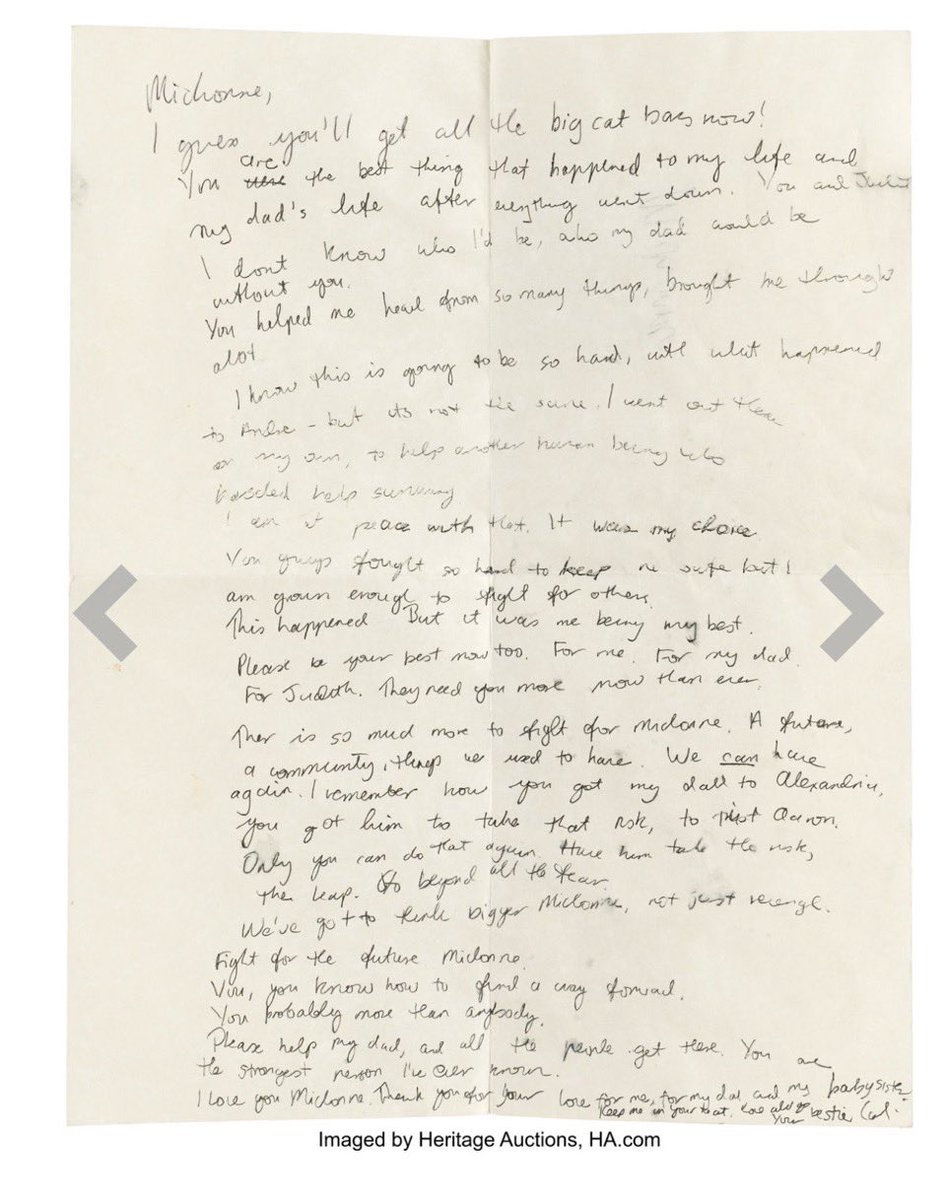 Michonne,
I guess you'll get all the big cat bars now!
are
You were the best thing that happened to my life and
my dad's life after everything went down. You and Judith
I dont know who I'd be, who my dad would be
without you.
You helped me heal from so many things, brought me through
alot
I know this is going to be so hard, with what happened
to Andre - but its not the same. I went out there
on my own, to help another human being who
needed help surviving
I am at peace with that. It was my choice
You guys fought so hard to keep me safe but I
am grown enough to fight for others.
This happened But it was me being my best.
Please be your best now too. For me. For my dad.
For Judith. They need you more now than ever.
Ther is so much more to fight for Michonne. A future,
a community, things we used to have. We can have
again. I remember how you got my dad to Alexandria,
you got him to take that risk, to trust Aaron.
Only you can do that again. Have him take the risk,
the leap. Go beyond all the fear.
We've got to think bigger Michonne, not just revenge.
Fight for the future Michonne.
You, you know how to find a way forward.
You probably more than anybody.
Please help my dad, and all the people get there. You are
the strongest person I've ever known.
I love you Michonne. Thank you for your love for me, for my dad and my baby sister
Keep me in your heart. Love
Your bestie Carl.
Imaged by Heritage Auctions, HA.com